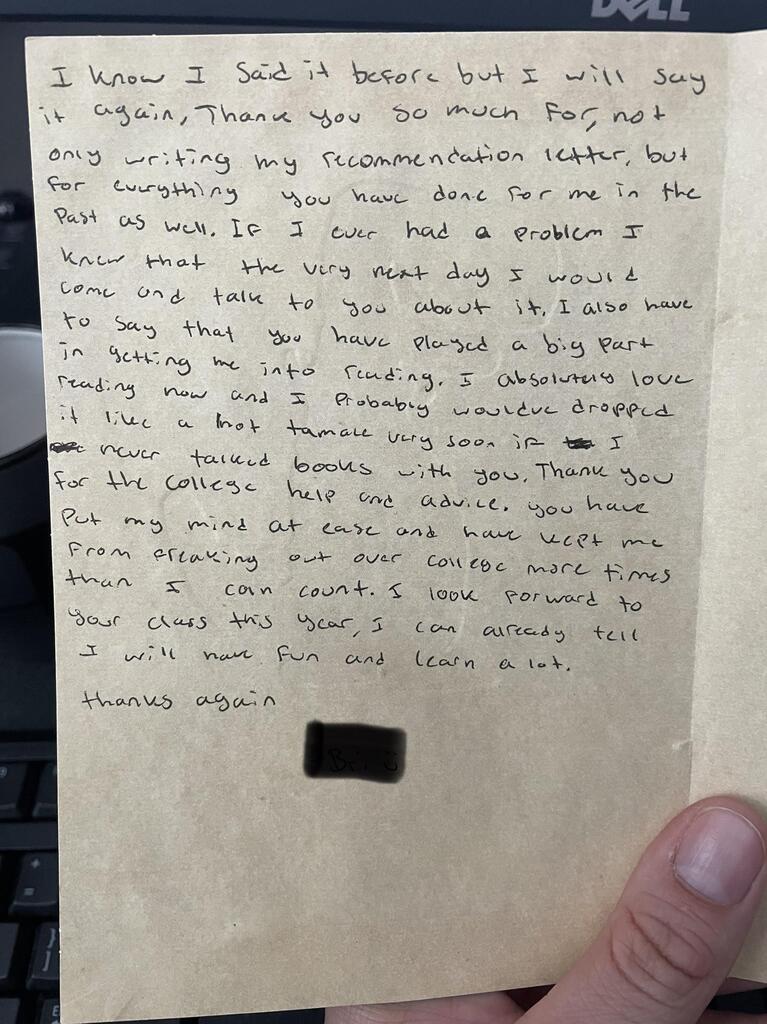 DELL
I know I said it before but I will say
it again, Thank you so much for, not
only writing my recommendation letter, but
for everything you have done for me in the
Past as well. If I ever had a problem I
knew that the very next day I would
come and talk to you about it. I also have
to say that you have played a big part
in getting me into reading. I absolutely love
reading now and I Probably wouldve dropped
it like a hot tamale very soon if I
never talked books with you. Thank you
for the college help and advice. you have
put my mind at ease and have kept me
from freaking out over college more times
than I can count. I look forward to
your class this year, I can already tell
I will have fun and learn a lot.
thanks again